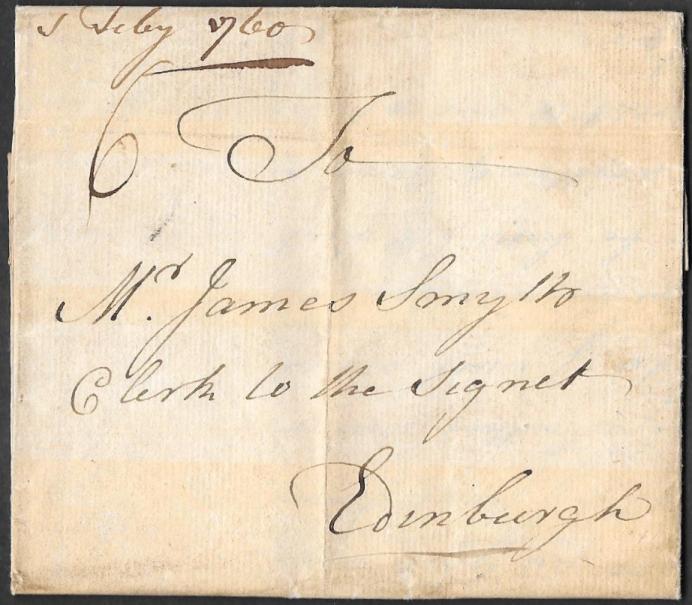 5 Feby 1760
6 To
Mr. James Smyth
Clerk to the Signet
Edinburgh